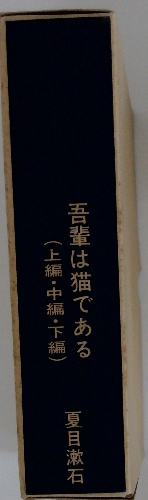 吾輩は猫である
（上編・中編・下編）
夏目漱石